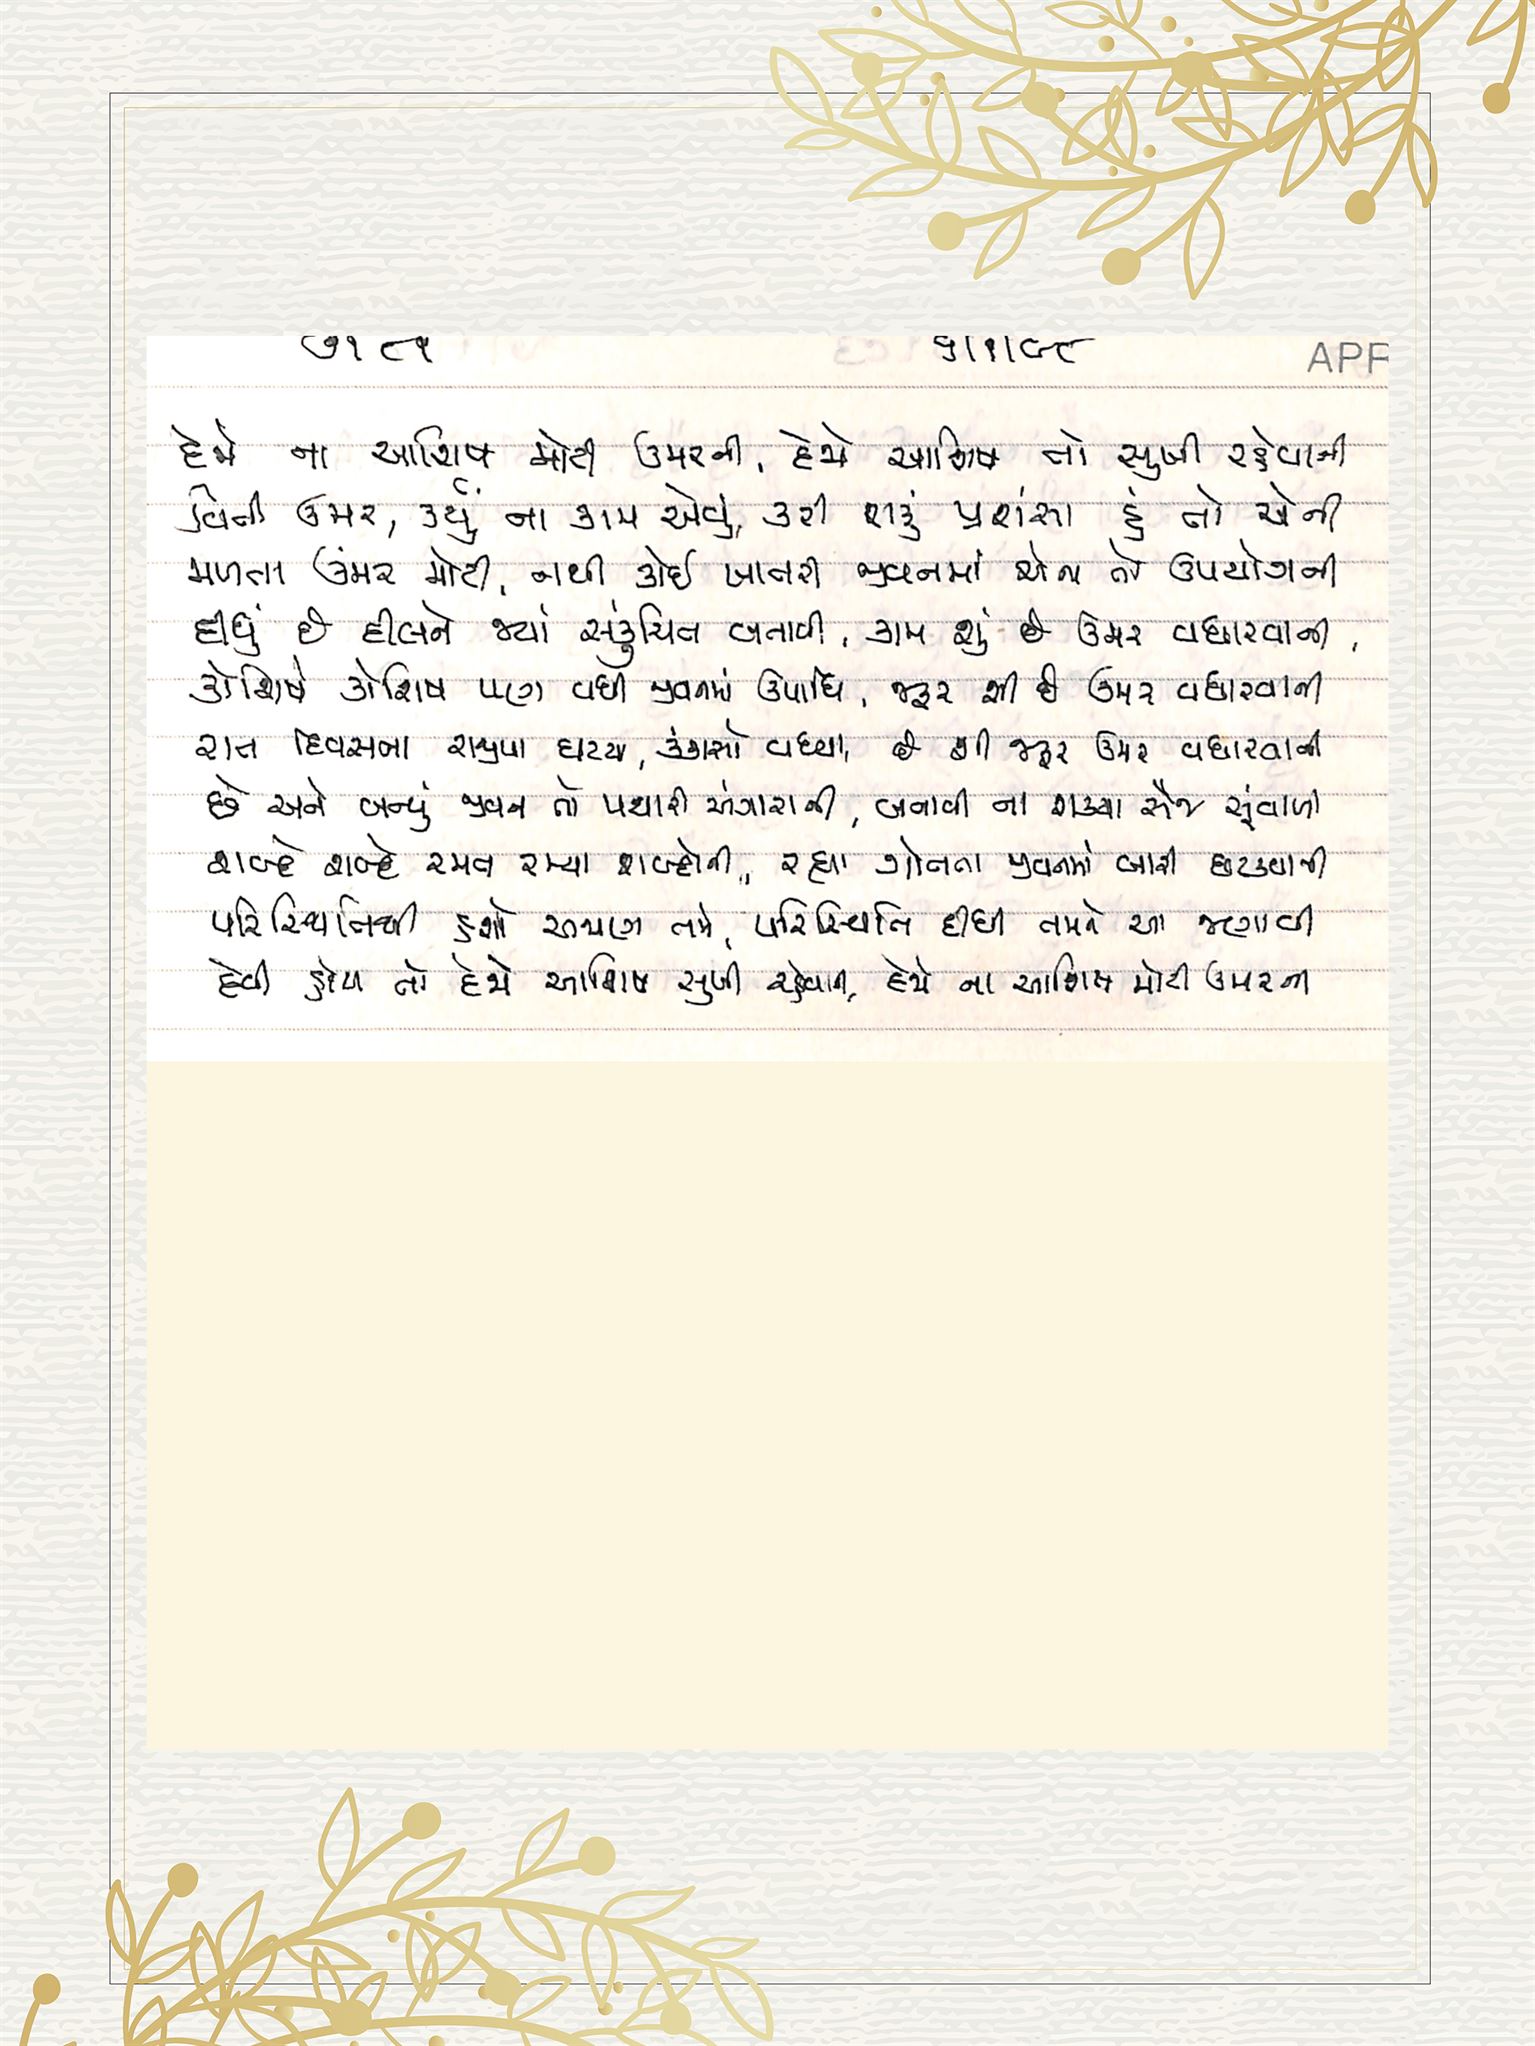 ૭૧૮૧ ૫/૧/૯૮ APR
દેજે ના આશિષ મોટી ઉમરની, દેજે આશિષ તો સુખી રહેવાની
વિતી ઉમર, કર્યું ના કામ એવું, કરી શકું પ્રશંસા હું તો એની
મળતા ઉંમર મોટી, નથી કોઈ ખાતરી જીવનમાં એના તો ઉપયોગની
દીધું છે દીલને જ્યાં સંકુચિત બનાવી, કામ શું છે ઉમર વધારવાની,
કોશિષે કોશિષ પણ વધી જીવનમાં ઉપાધિ, જરૂર શી છે ઉમર વધારવાની
રાત દિવસના રાજીપા ઘટયા, કંકાસો વધ્યા, છે શી જરૂર ઉમર વધારવાની
છે અને બન્યું જીવન તો પથારી અંગારાની, બનાવી ના શક્યા સેજ સુંવાળી
શબ્દે શબ્દે રમત રમ્યા શબ્દોની, રહ્યા ગોતતા જીવનમાં બારી છટકવાની
પરિસ્થિતિથી હશો અજાણ તમે, પરિસ્થિતિ દીધી તમને આ જણાવી
દેવી હોય તો દેજે આશિષ સુખી રહેવાની, દેજે ના આશિષ મોટી ઉમરની